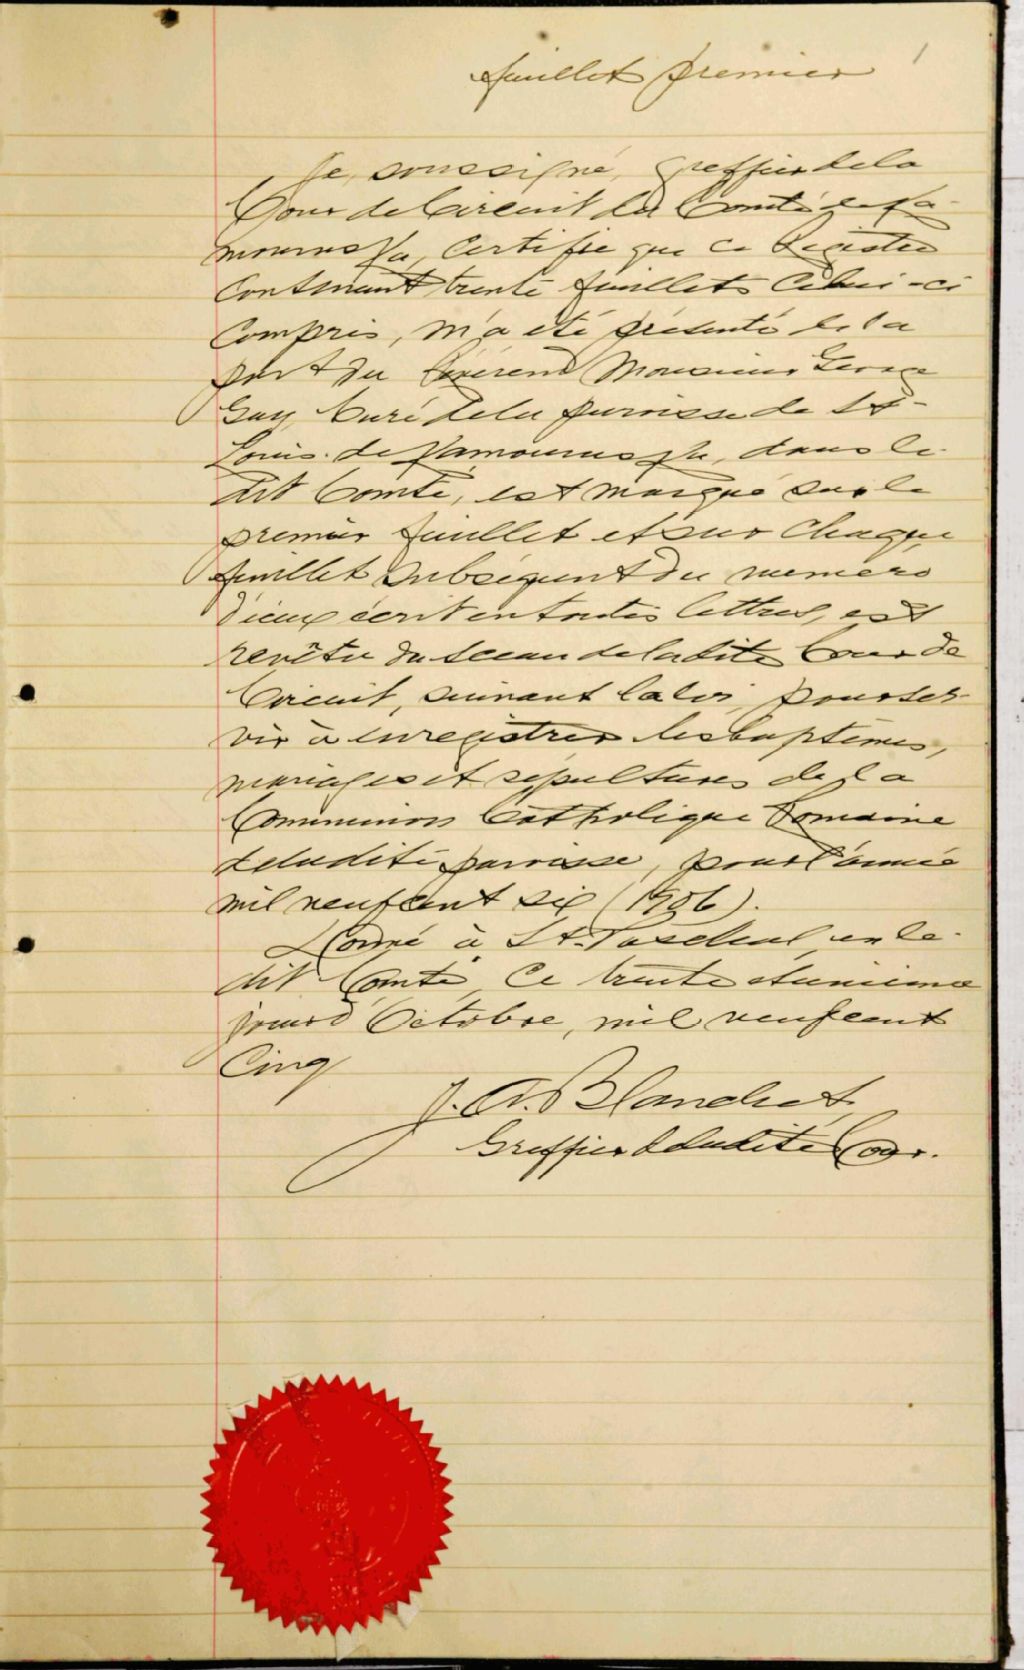 feuillet premier
1
Je, soussigné, greffier de la
Cour de Circuit du Comté de Ka-
mouraska, certifie que ce Registre
contenant trente feuillets celui-ci
compris, m'a été présenté de la
part du Révérend Monsieur George
Guy, Curé de la paroisse de St-
Louis de Kamouraska, dans le
dit Comté, est marqué sur le
premier feuillet et sur chaque
feuillet subséquent du numéro
d'iceux écrit en toutes lettres, est
revêtu du sceau de la dite Cour de
Circuit, suivant la loi, pour ser-
vir à enregistrer les baptêmes,
mariages et sépultures de la
Communion Catholique Romaine
de ladite paroisse, pour l'année
mil neuf cent six (1906).
Donné à St. Paschal, en le-
dit Comté, ce trente et unième
jour d'Octobre, mil neuf cent
Cinq
J. A. Blanchet,
Greffier de ladite Cour.